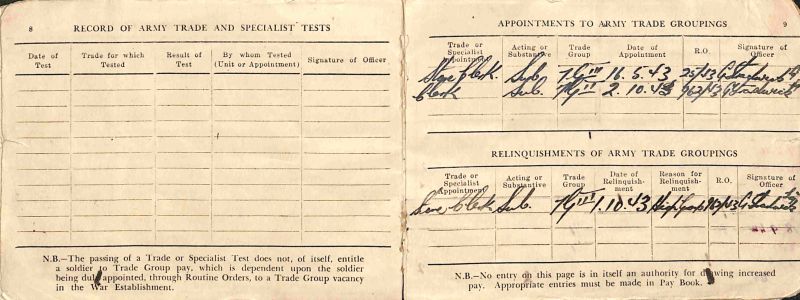 8
RECORD OF ARMY TRADE AND SPECIALIST TESTS
Date of Test
Trade for which Tested
Result of Test
By whom Tested (Unit or Appointment)
Signature of Officer
N.B.—The passing of a Trade or Specialist Test does not, of itself, entitle
a soldier to Trade Group pay, which is dependent upon the soldier
being duly appointed, through Routine Orders, to a Trade Group vacancy
in the War Establishment.
APPOINTMENTS TO ARMY TRADE GROUPINGS
9
Trade or Specialist Appointment
Acting or Substantive
Trade Group
Date of Appointment
R.O.
Signature of Officer
Clerk Sub. TG III 16.5.43 25/43
Clerk Sub. TG II 2.10.43 962/43
RELINQUISHMENTS OF ARMY TRADE GROUPINGS
Trade or Specialist Appointment
Acting or Substantive
Trade Group
Date of Relinquish-ment
Reason for Relinquish-ment
R.O.
Signature of Officer
Clerk Sub. TG III 1.10.43
N.B.—No entry on this page is in itself an authority for drawing increased
pay. Appropriate entries must be made in Pay Book.